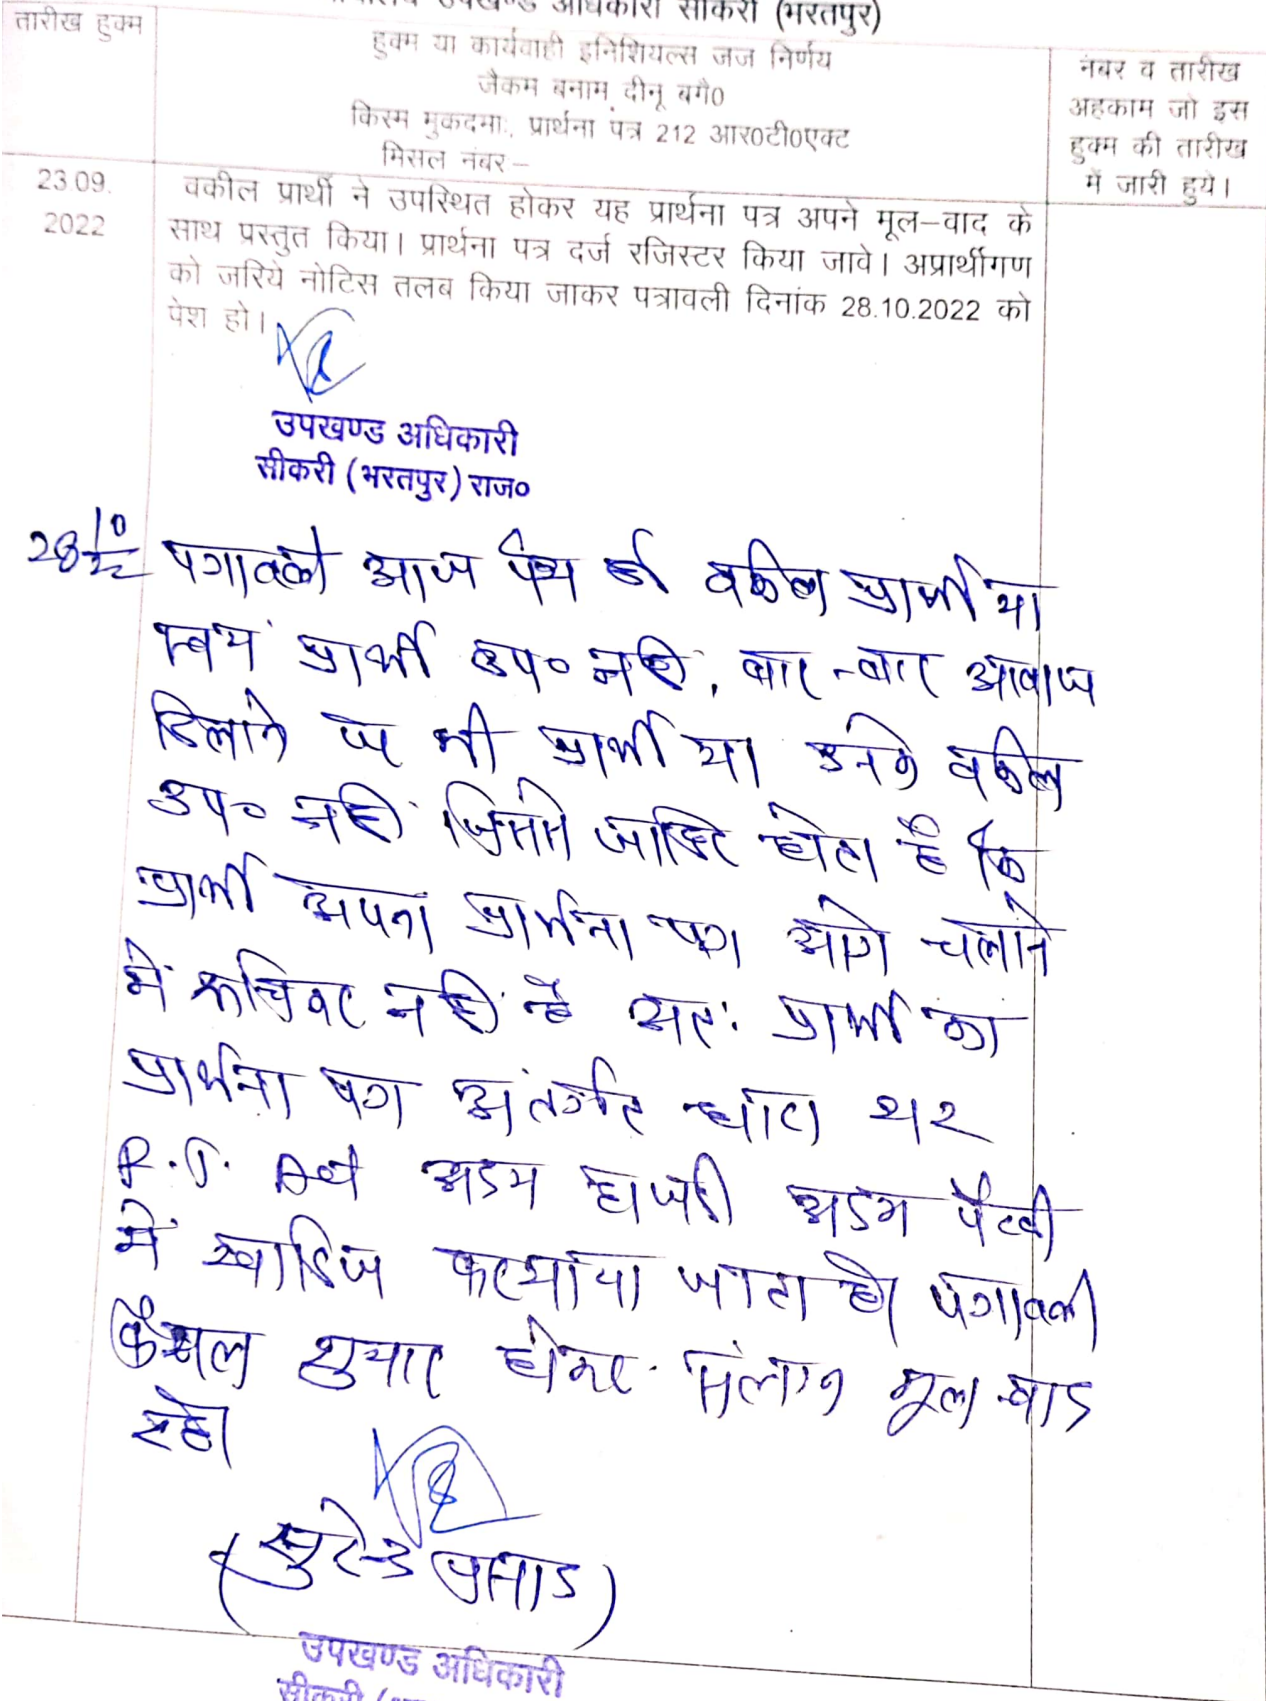 उपखण्ड अधिकारी सीकरी (भरतपुर)
तारीख हुक्म
हुक्म या कार्यवाही इनिशियल्स जज निर्णय
जैकम बनाम दीनू बगै०
किस्म मुकदमाः, प्रार्थना पत्र 212 आर०टी०एक्ट
मिसल नंबर –
नंबर व तारीख
अहकाम जो इस
हुक्म की तारीख
में जारी हुये।
23.09.
2022
वकील प्रार्थी ने उपस्थित होकर यह प्रार्थना पत्र अपने मूल–वाद के
साथ प्रस्तुत किया। प्रार्थना पत्र दर्ज रजिस्टर किया जावे। अप्रार्थीगण
को जरिये नोटिस तलब किया जाकर पत्रावली दिनांक 28.10.2022 को
पेश हो।
उपखण्ड अधिकारी
सीकरी (भरतपुर) राज०
28/10/22 पत्रावली आज पेश हुई वकील प्रार्थी या
स्वयं प्रार्थी उप० नहीं, बार-बार आवाज
दिलाने पर भी प्रार्थी या उनके वकील
उप० नहीं जिससे जाहिर होता है कि
प्रार्थी अपना प्रार्थना पत्र आगे चलाने
में रूचिकर नहीं है अतः प्रार्थी का
प्रार्थना पत्र अंतर्गत धारा २१२
R.T. Act अदम हाजरी अदम पैरवी
में खारिज फरमाया जाता है। पत्रावली
फैसल शुमार होकर संलग्न मूल वाद
रहे।
(सुरेन्द्र प्रसाद)
उपखण्ड अधिकारी